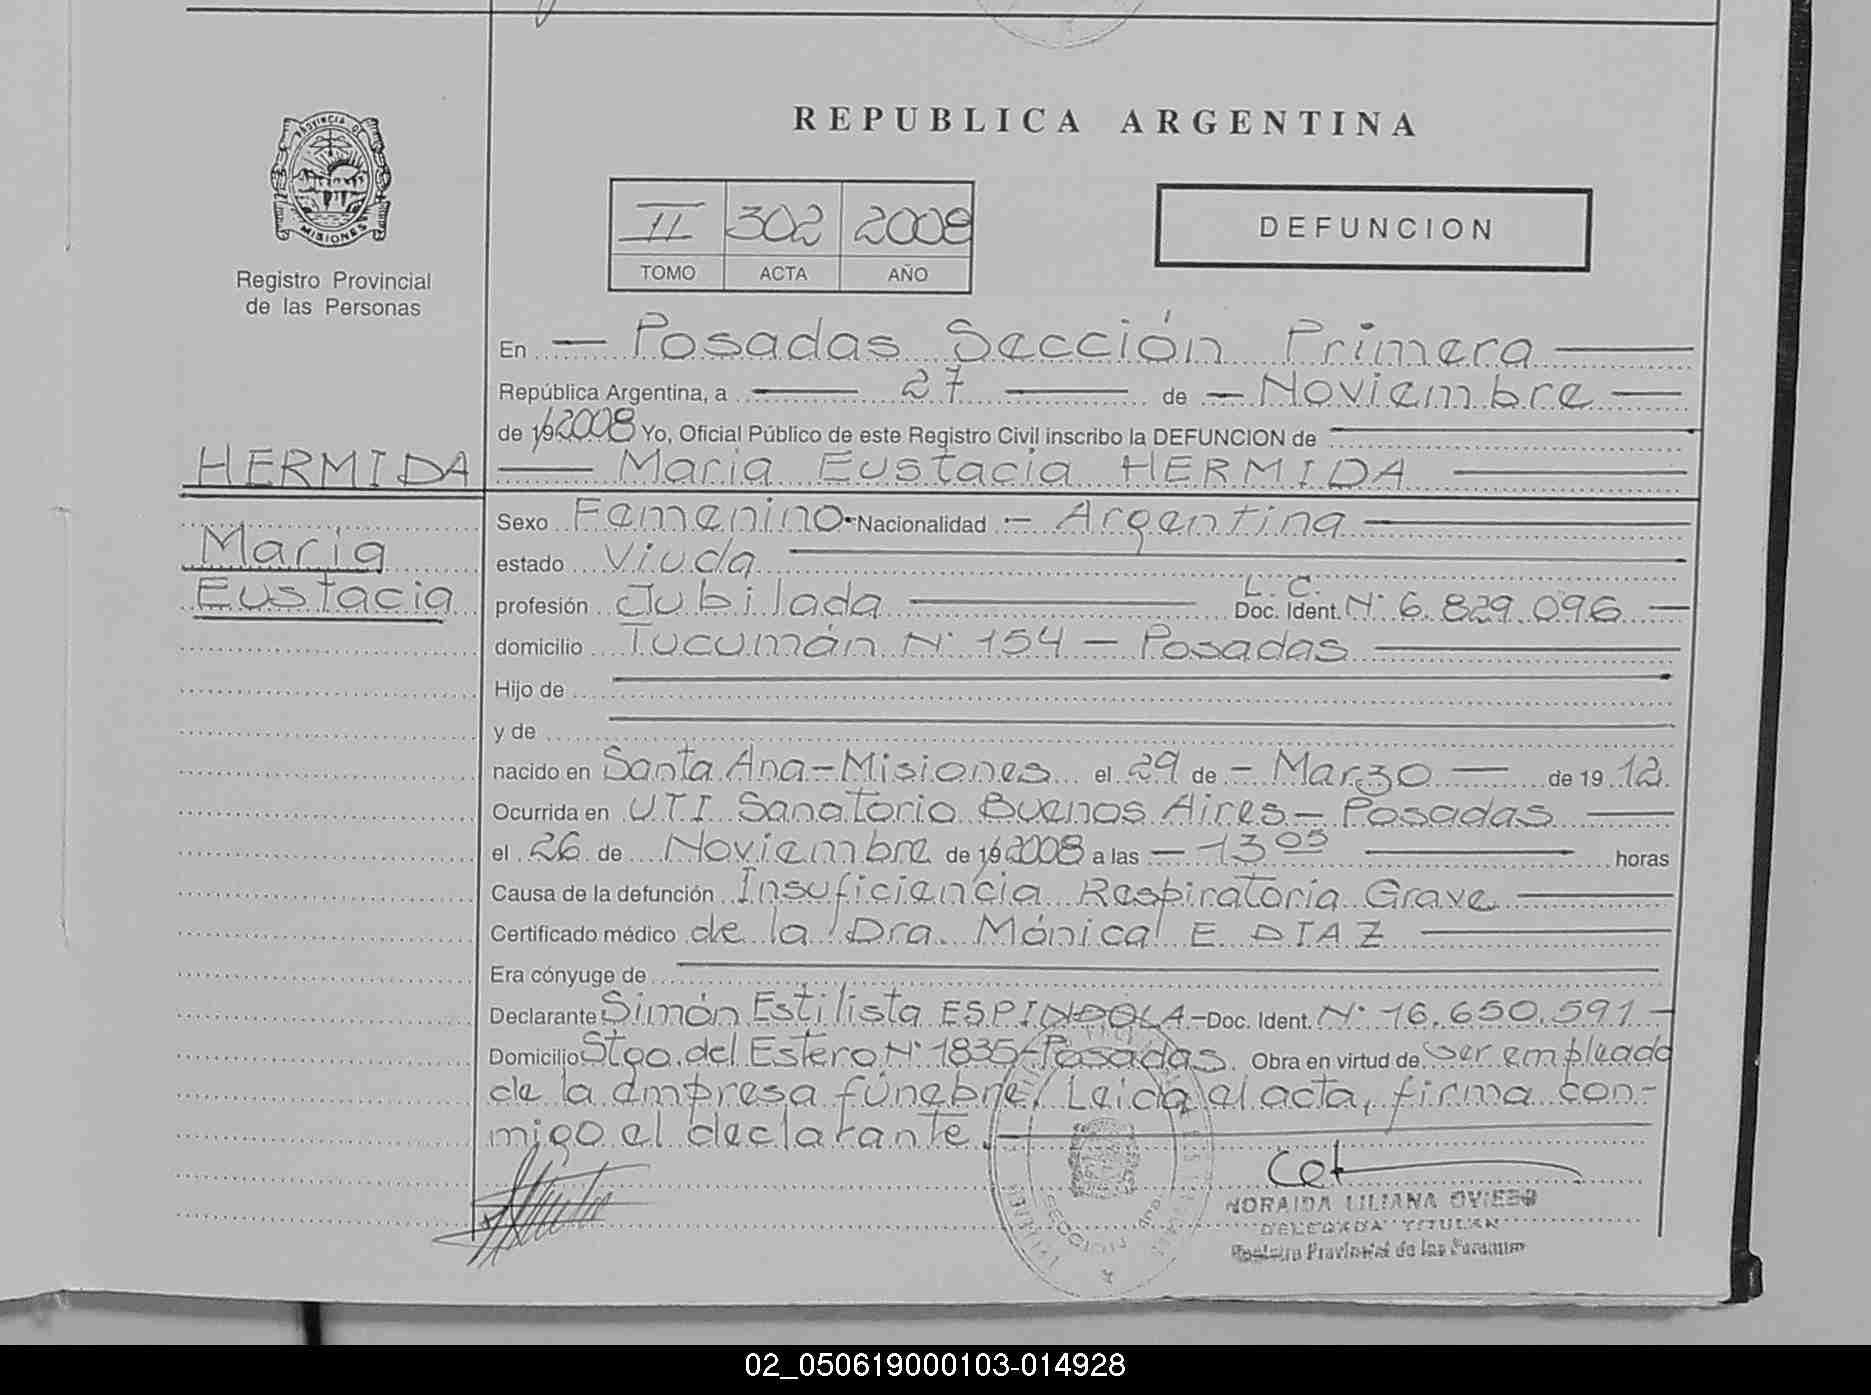 REPUBLICA ARGENTINA
PROVINCIA DE
MISIONES
Registro Provincial
de las Personas
II 302 2008
TOMO ACTA AÑO
DEFUNCION
En — Posadas Sección Primera —
República Argentina, a — 27 — de — Noviembre —
de 19 2008 Yo, Oficial Público de este Registro Civil inscribo la DEFUNCION de —
HERMIDA — Maria Eustacia HERMIDA —
Maria
Eustacia
Sexo Femenino.- Nacionalidad — Argentina —
estado Viuda —
L.C.
profesión Jubilada — Doc. Ident. N° 6.829.096 —
domicilio Tucumán N° 154 — Posadas —
Hijo de —
y de —
nacido en Santa Ana - Misiones el 29 de - Marzo — de 19 12
Ocurrida en UTI Sanatorio Buenos Aires - Posadas —
el 26 de Noviembre de 19 2008 a las — 13 05 — horas
Causa de la defunción Insuficiencia Respiratoria Grave —
Certificado médico de la Dra. Mónica E DIAZ —
Era cónyuge de —
Declarante Simón Estilista ESPINDOLA - Doc. Ident. N° 16.650.591 -
Domicilio Stgo. del Estero N° 1835 - Posadas. Obra en virtud de ser empleado
de la empresa fúnebre. Leida el acta, firma con-
migo el declarante. —
NORAIDA LILIANA OVIEDO
DELEGADA TITULAR
Registro Provincial de las Personas
SECCION 1ra
02_050619000103-014928